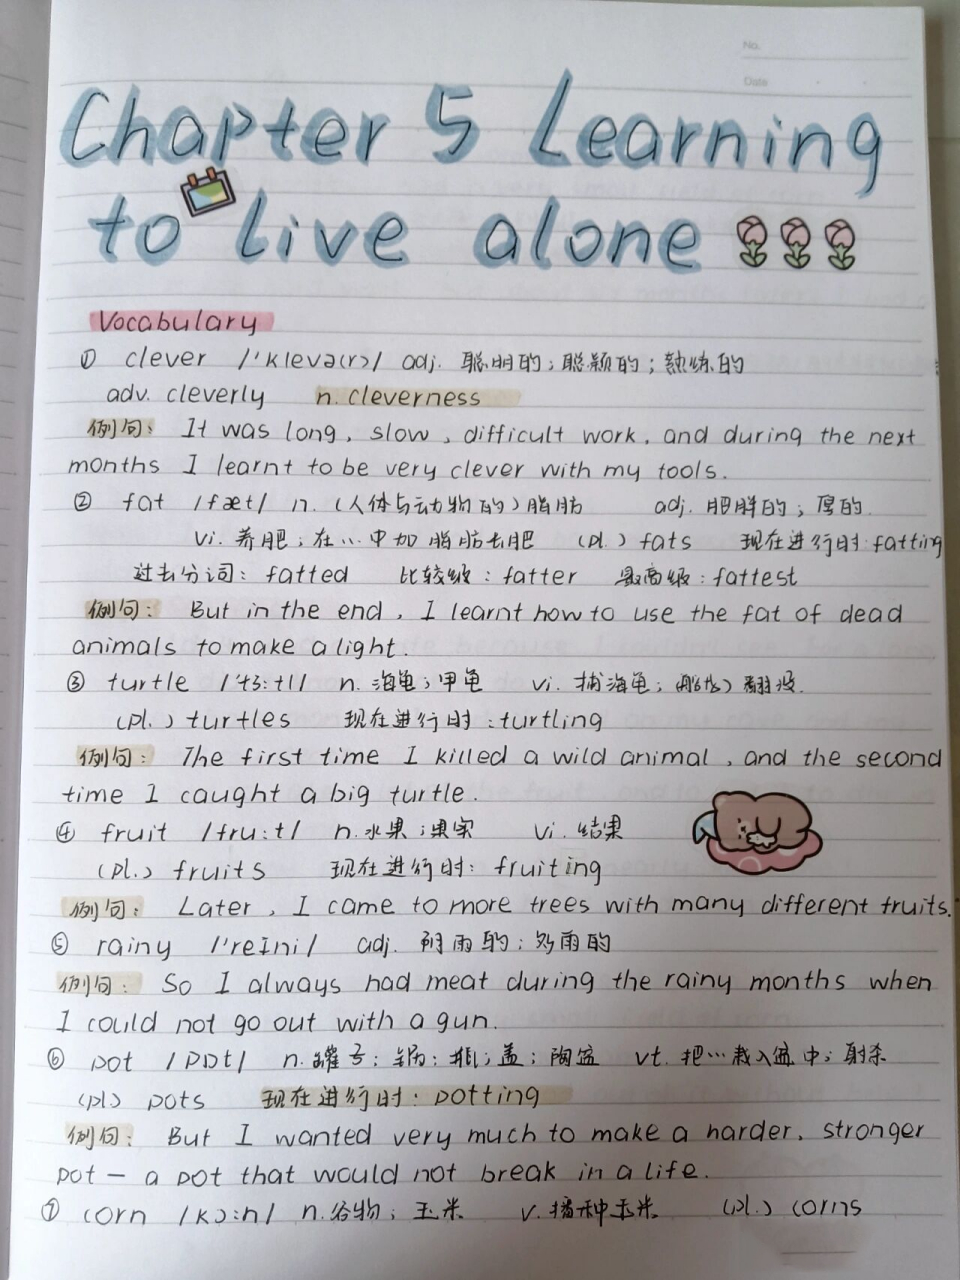 No.
Date
Chapter 5 Learning
to live alone
Vocabulary
① clever /'klevə(r)/ adj. 聪明的；聪颖的；熟练的
adv. cleverly n. cleverness
例句： It was long, slow, difficult work, and during the next
months I learnt to be very clever with my tools.
② fat /fæt/ n. (人体与动物的)脂肪 adj. 肥胖的；厚的
vi. 养肥；在…中加脂肪去肥 (pl.) fats 现在进行时：fatting
过去分词：fatted 比较级：fatter 最高级：fattest
例句： But in the end, I learnt how to use the fat of dead
animals to make a light.
③ turtle /'tɜ:tl/ n. 海龟；甲龟 vi. 捕海龟；(船改)翻没.
(pl.) turtles 现在进行时：turtling
例句： The first time I killed a wild animal, and the second
time I caught a big turtle.
④ fruit /fru:t/ n. 水果；果实 vi. 结果
(pl.) fruits 现在进行时：fruiting
例句： Later, I came to more trees with many different fruits.
⑤ rainy /'reɪni/ adj. 阴雨的；多雨的
例句： So I always had meat during the rainy months when
I could not go out with a gun.
⑥ pot /pɒt/ n. 罐子；锅；瓶；盖；陶盆 vt. 把…栽入盆中；射杀
(pl) pots 现在进行时：potting
例句： But I wanted very much to make a harder, stronger
pot — a pot that would not break in a life.
⑦ corn /kɔ:n/ n. 谷物；玉米 v. 播种玉米 (pl.) corns